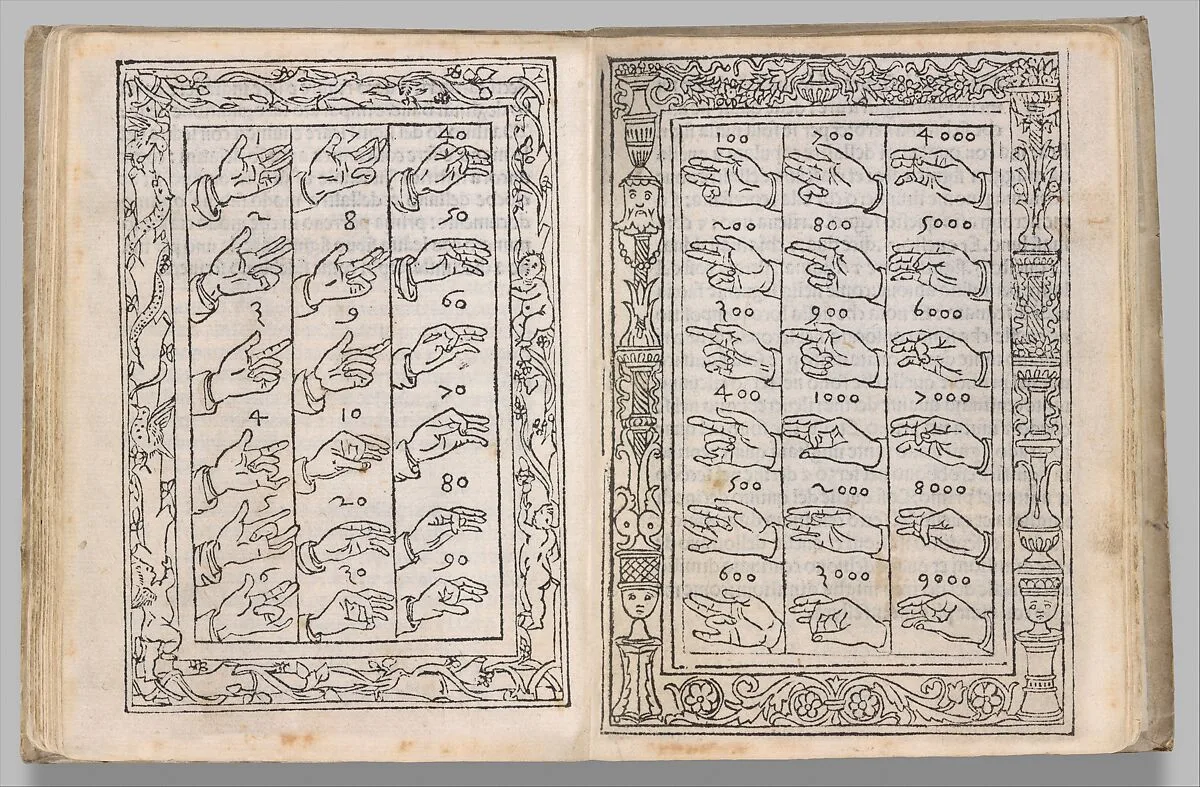 1
2
3
4
5
6
7
8
9
10
20
30
40
50
60
70
80
90
100
200
300
400
500
600
700
800
900
1000
2000
3000
4000
5000
6000
7000
8000
9000